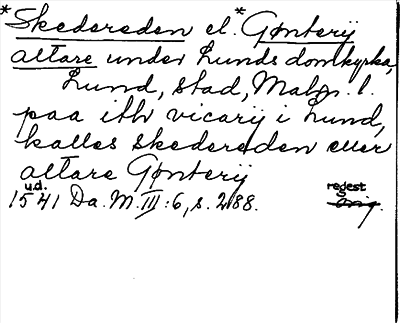 *Skedereden el. *Gønterij
altare under Lunds domkyrka,
Lund, stad, Malm. l.
paa ith vicarij i Lund,
kalles skedereden eller
altare Gønterij
u.d. regest
1541 Da. M. III:6, s. 288. orig.